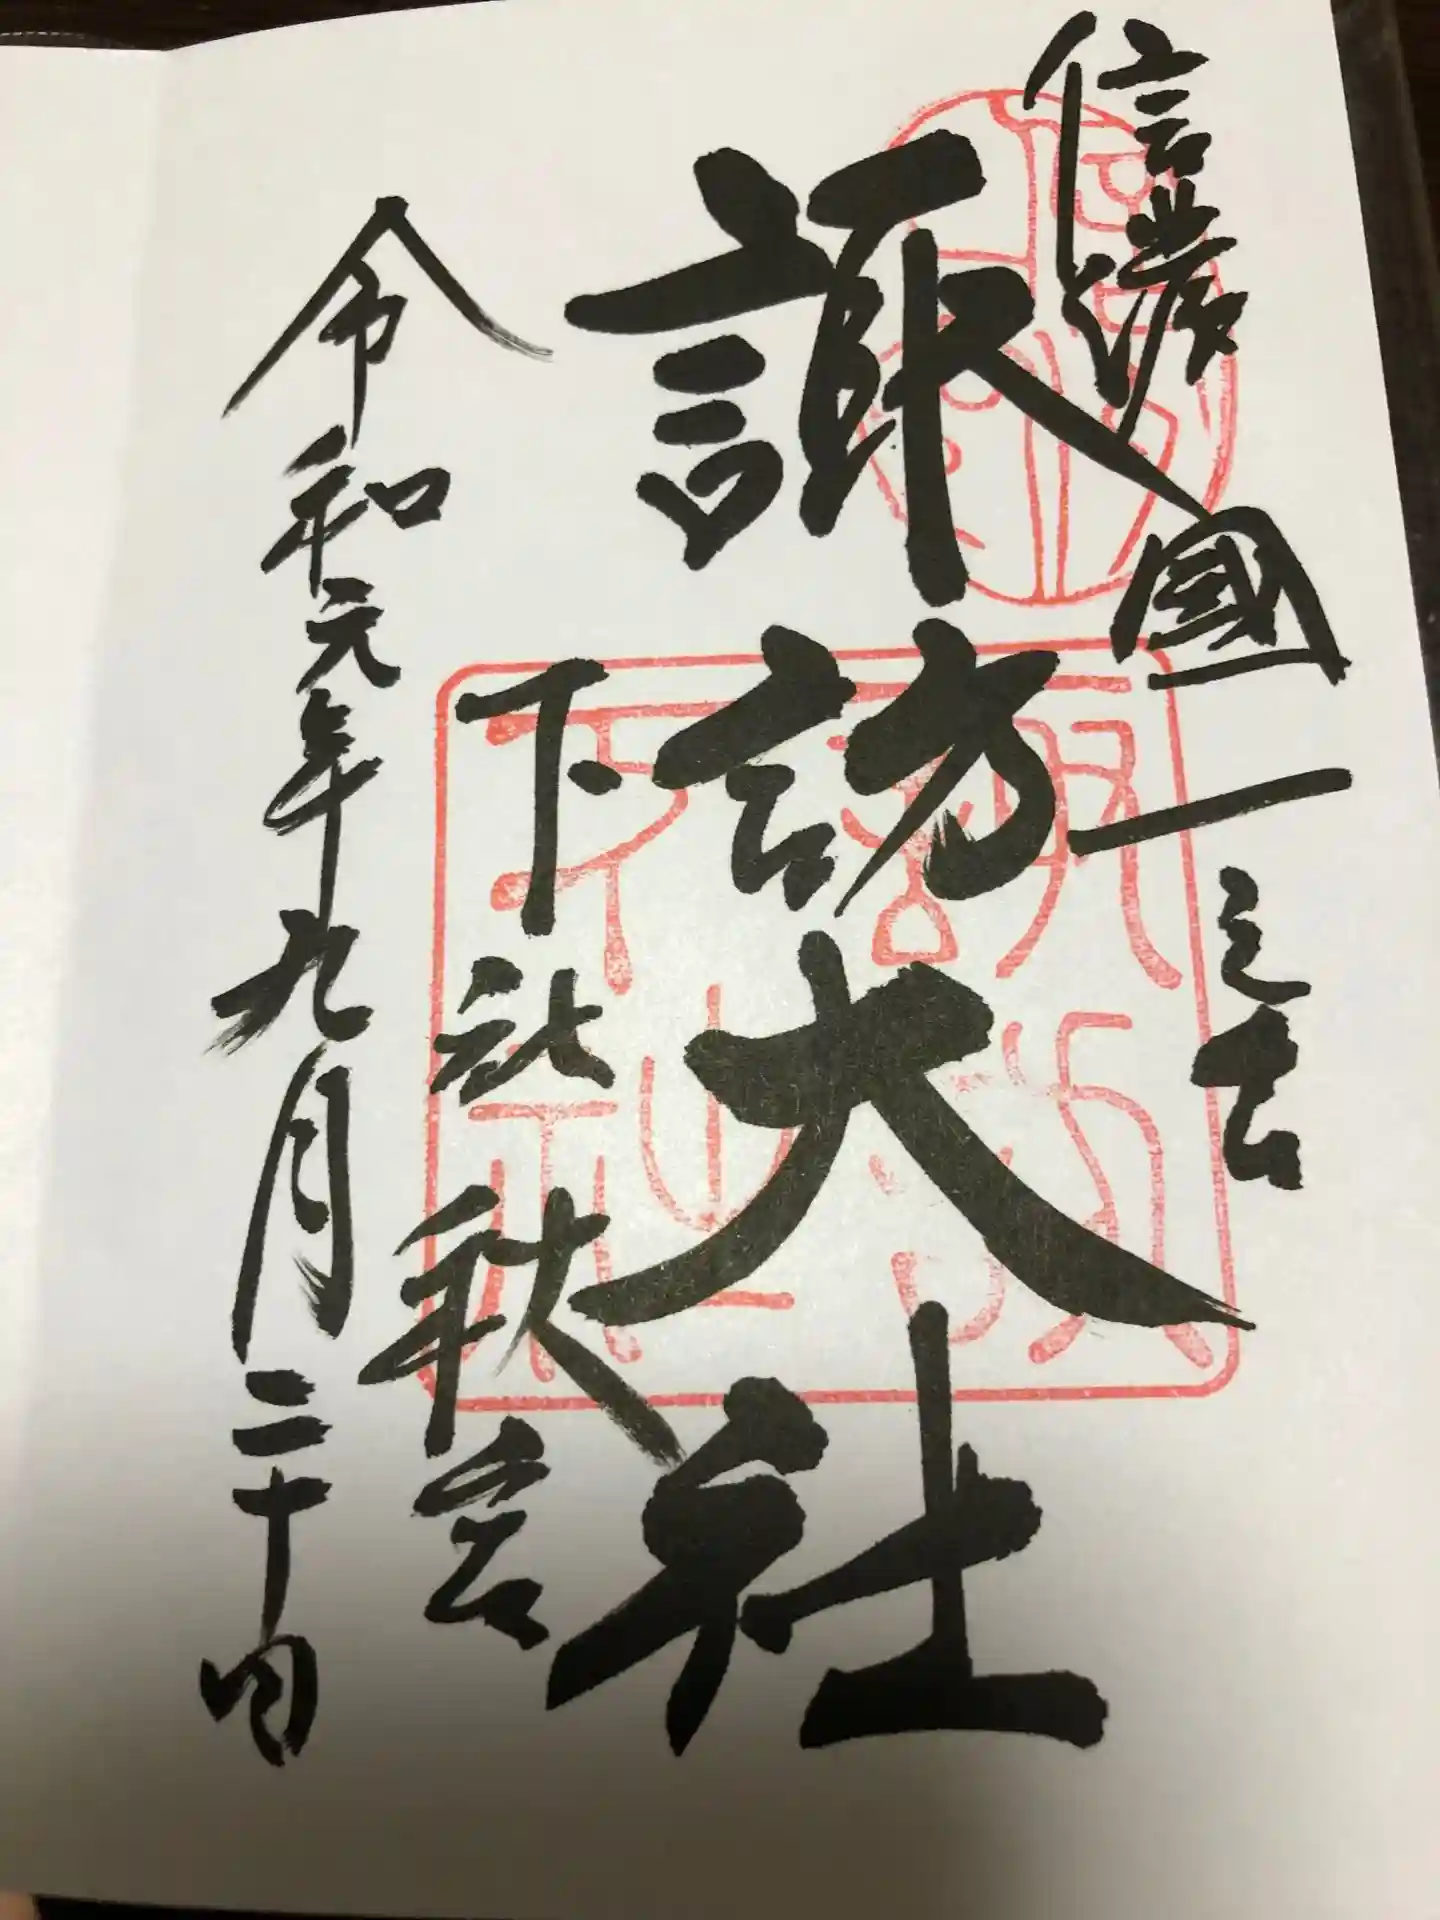 信濃國一之宮
諏訪大社
下社秋宮
令和元年九月二十日